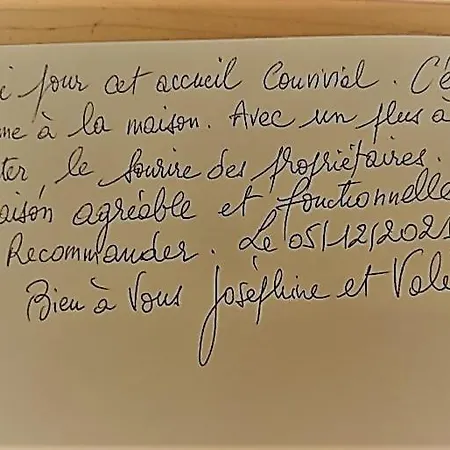 i pour cet accueil Convivial. C'é
me à la maison. Avec un plus à
ter, le sourire des propriétaires.
aison agréable et fonctionnelle
Recommander. Le 05/12/2021
Bien à Vous Joséphine et Vale